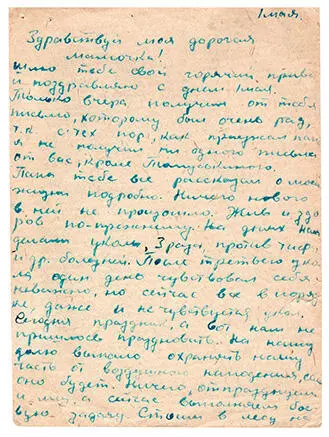 1 мая.
Здравствуй моя дорогая
мамочка!
Шлю тебе свой горячий привет
и поздравляю с днем 1 мая.
Только вчера получил от тебя
письмо, которому был очень рад,
т.к. с тех пор, как приезжал папа
я не получил ни одного письма
от вас, кроме
Папа тебе все рассказал о моей
жизни подробно. Ничего нового
в ней не произошло. Жив и здо
ров по-прежнему. На днях нам
делали уколы, 3 раза, против тиф.
и др. болезней. После третьего уко
ла один день чувствовал себя
неважно, но сейчас все в поряд
ке, даже и не чувствуется укол.
Сегодня праздник, а вот нам не
пришлось праздновать. На нашу
долю выпало охранять нашу
часть от воздушного нападения, если
оно будет. Ничего, отпразднуем
и мы, а сейчас выполняем бое
вую задачу. Стоим в лесу на